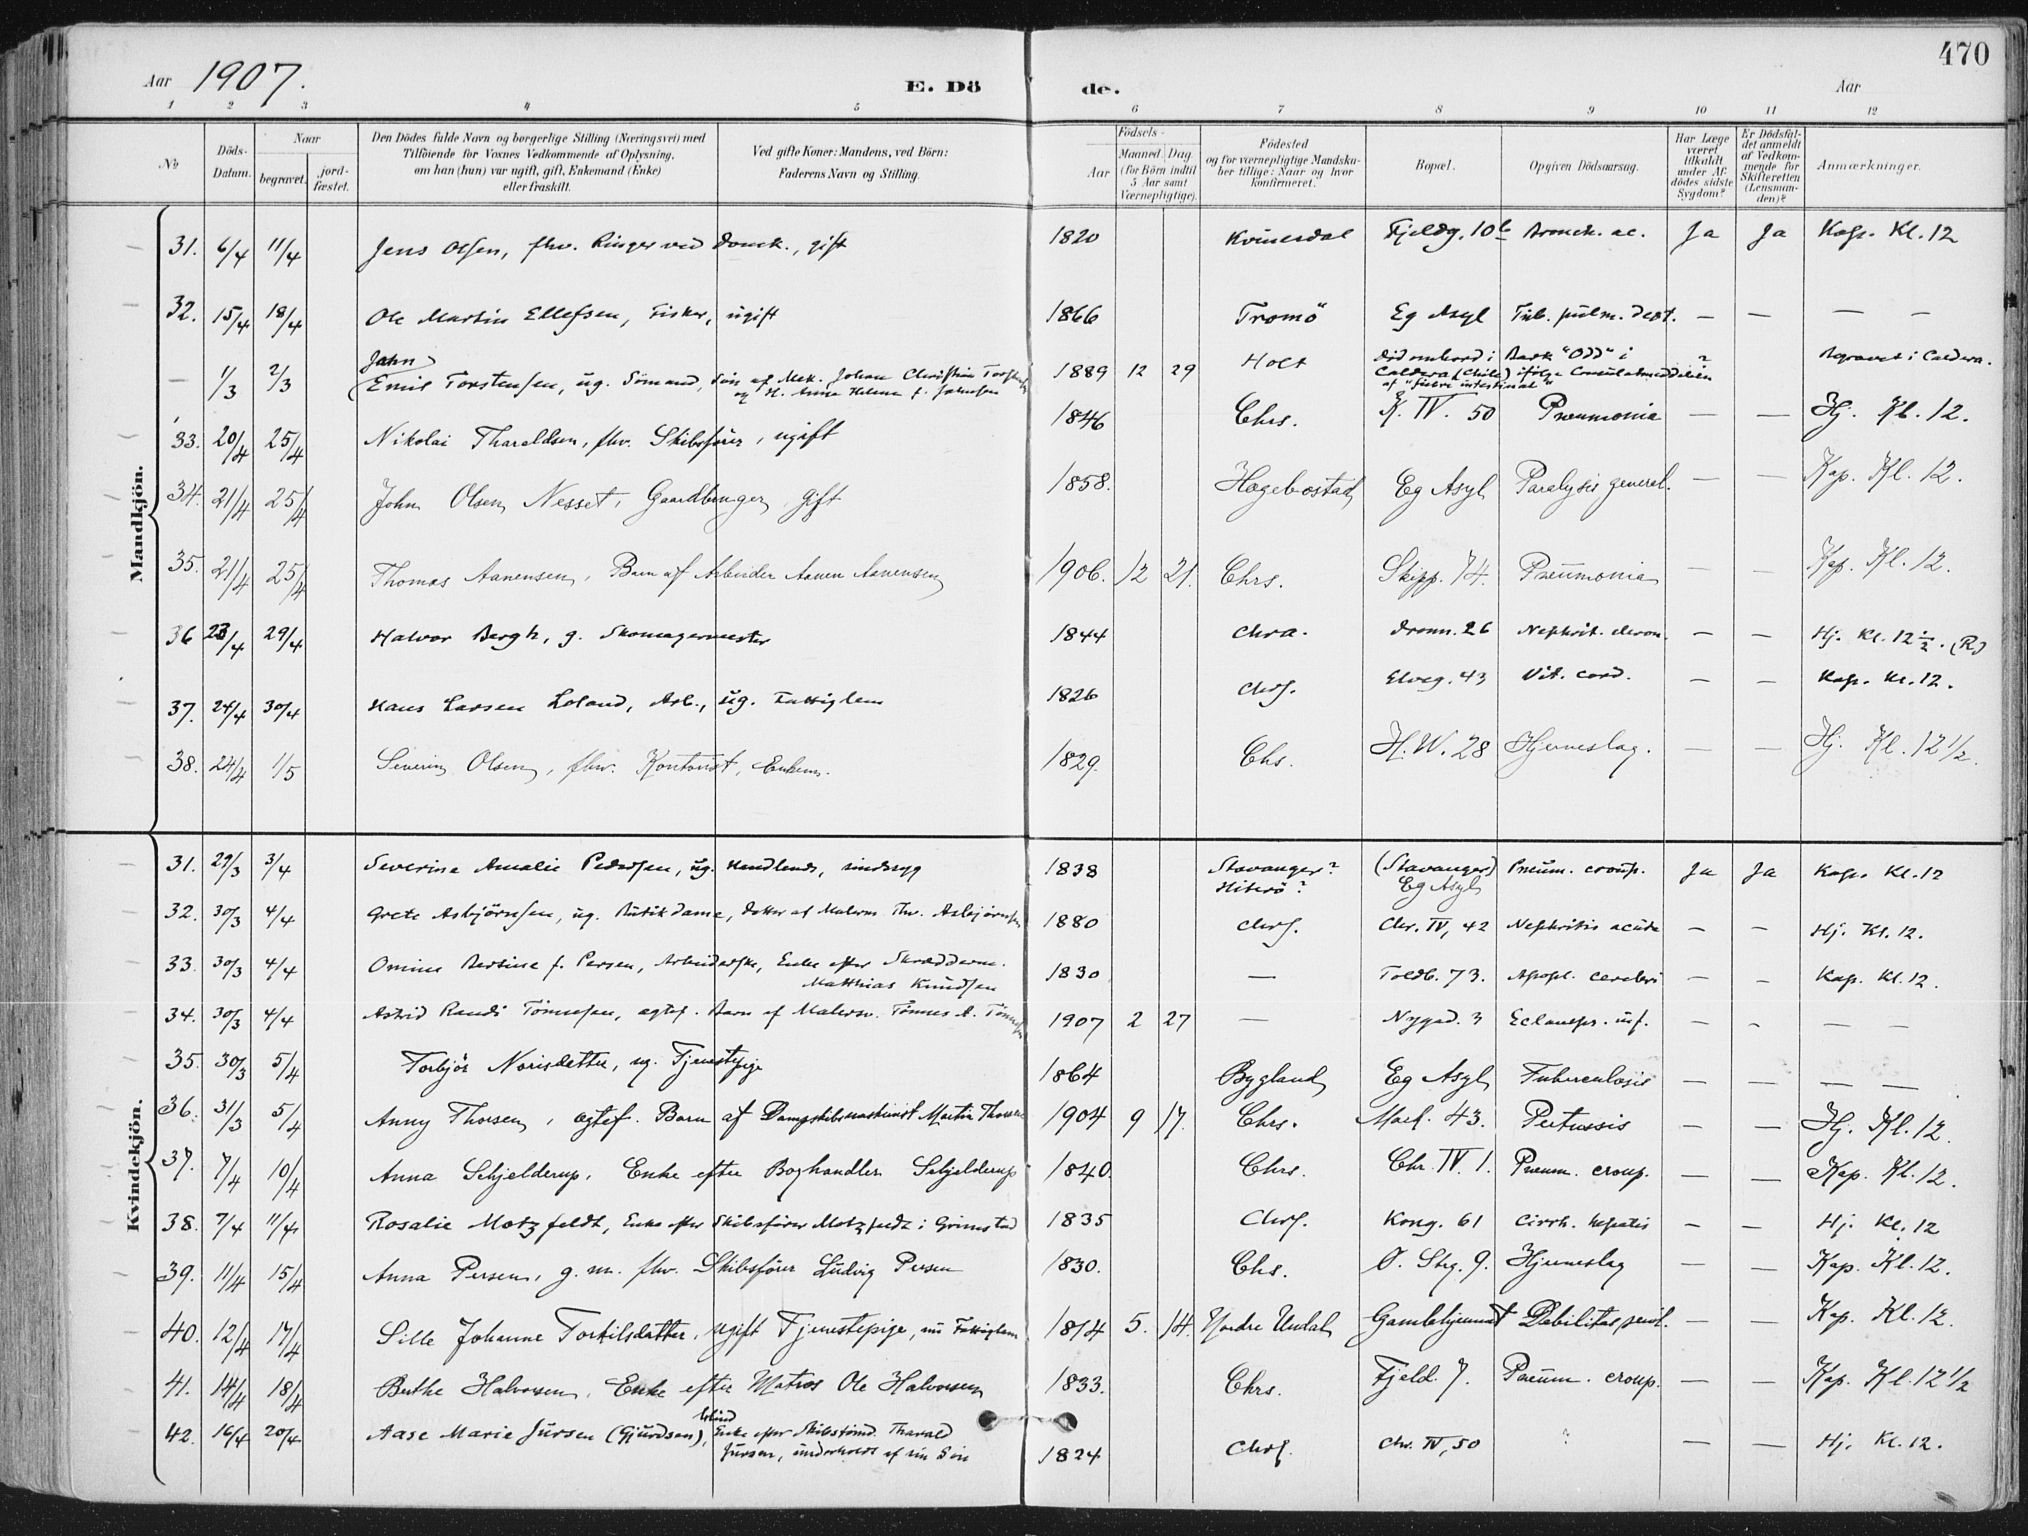 470
Aar 1907. E. Dö de. Aar
1 2 3 4 5 6 7 8 9 10 11 12
No
Döds-Datum.
Naar
begravet.
jord-fæstet.
Den Dödes fulde Navn og borgerlige Stilling (Næringsvei) med
Tilföiende for Voxnes Vedkommende af Oplysning,
om han (hun) var ugift, gift, Enkemand (Enke)
eller fraskilt.
Ved gifte Koner: Mandens, ved Börn:
Faderens Navn og Stilling.
Födsels-
Aar
Maaned. Dag.
(for Börn indtil
5 Aar samt
Værnepligtige).
Födested
og for værnepligtige Mandska-
ber tillige: Naar og hvor
konfirmeret.
Bopæl.
Opgiven Dödsaarsag.
Har Læge
været
tilkaldt
under Af-
dödes sidste
Sygdom?
Er Dödsfal-
det anmeldt
af Vedkom-
mende for
Skifteretten
(Lensman-
den)?
Anmærkninger.
Mandkjön.
31. 6/4 11/4 Jens Olsen, fhv. Ringer ved Domk., gift 1820 Kvinesdal Fjeldg. 10 b Bronch. ac. Ja Ja Kap. Kl. 12
32. 15/4 18/4 Ole Martin Ellefsen, Fisker, ugift 1866 Tromö Eg Asyl Tub. pulm. dext. — — — —
— 1/3 2/3 Jahn Emil Torstensen, ug. Sömand, Sön af Mek. Johan Christian 1889 12 29 Holt Död ombord i Bark "Odd" i ? Begravet i Caldera.
og H. Anne Helene f. Caldera (Chile) ifölge
af "fiebre intestinal"
33. 20/4 25/4 Nikolai Tharaldsen, fhv. Skibsförer, ugift 1846 Chrs. K. IV. 50 Pneumonia — — Hj. Kl. 12.
34. 21/4 25/4 John Olsen Nesset, Gaardbruger, gift 1858. Hægebostad Eg Asyl Paralysis general. — — Kap. Kl. 12.
35. 21/4 25/4 Thomas Aanensen, Barn af Arbeider Aanen Aanensen 1906. 12 21. Chrs. Skipp. 74. Pneumonia — — Kap. Kl. 12.
36 23/4 29/4 Halvor Bergh, g. Skomagermester 1844 Chra. Dronn. 26 Nephrit. — — Hj. Kl. 12 1/2. (R)
37. 24/4 30/4 Hans Larsen Loland, Arb., ug. Fattiglem 1826 Chrs. Elveg. 43 Vit. cord. — — Kap. Kl. 12.
38. 24/4 1/5 Severin Olsen, fhv. Kontorist, Enkem. 1829. Chs. H. W. 28 Hjerneslag. — — Hj. Kl. 12 1/2.
Kvindekjön.
31. 29/3 3/4 Severine Amalie Pedersen, ug. Handlende, sindssyg 1838 Stavanger? (Stavanger) Pneum. croup. Ja Ja Kap. Kl. 12
Hiterö? Eg Asyl
32. 30/3 4/4 Grete Asbjörnsen, ug. Butikdame, Datter af Malerm. Thv. Asbjörnsen 1880 Chrs. Chr. IV, 42 Nephritis acuta — — Hj. Kl. 12.
33. 30/3 4/4 Omine Bertine f. Persen, Arbeiderske, Enke efter Skrædderm. 1830 — Toldb. 73. Apopl. cerebri — — Kap. Kl. 12.
Matthias Knudsen
34. 30/3 4/4 Astrid Randi Tönnesen, ægtef. Barn af Malersv. Tönnes A. Tönnesen 1907 2 27 — Nygad. 3 Eclamps. inf. — — — —
35. 30/3 5/4 Torbjör Norisdatter, ug. Tjenestepige 1864 Bygland Eg Asyl Tuberculosis — — — —
36. 31/3 5/4 Anny Thorsen, ægtef. Barn af Dampskibsmaskinist Martin Thorsen 1904 9 17. Chrs. Mark. 43. Pertussis — — Hj. Kl. 12.
37. 7/4 10/4 Anna Schjelderup, Enke efter Boghandler Schjelderup 1840. Chrs. Chr. IV. 1. Pneum. croup. — — Kap. Kl. 12.
38. 7/4 11/4 Rosalie Motzfeldt, Enke efter Skibsförer Motzfeldt i Grimstad 1835 Chrs. Kong. 61 Cirrh. hepatis — — Hj. Kl. 12
39. 11/4 15/4 Anna Persen, g. m. fhv. Skibsförer Ludvig Persen 1830. Chs. Ø. Strg. 9. Hjerneslag — — Kap. Kl. 12.
40. 12/4 17/4 Sille Johanne Torkilsdatter, ugift Tjenestepige, nu Fattiglem 1814 5. 14. Nordre Undal Gamlehjemmet Debilitas senil. — — Kap. Kl. 12.
41. 14/4 18/4 Berthe Halvorsen, Enke efter Matros Ole Halvorsen 1833. Chrs. Fjeld. 7. Pneum. croup. — — Kap. Kl. 12 1/2
42. 16/4 20/4 Aase Marie Jursen (Gjurdsen), blind Enke efter Skibstömd. Tharald 1824 Chrs. Chr. IV, 50 ? — — Hj. Kl. 12.
Jursen, underholdt af sin Sön